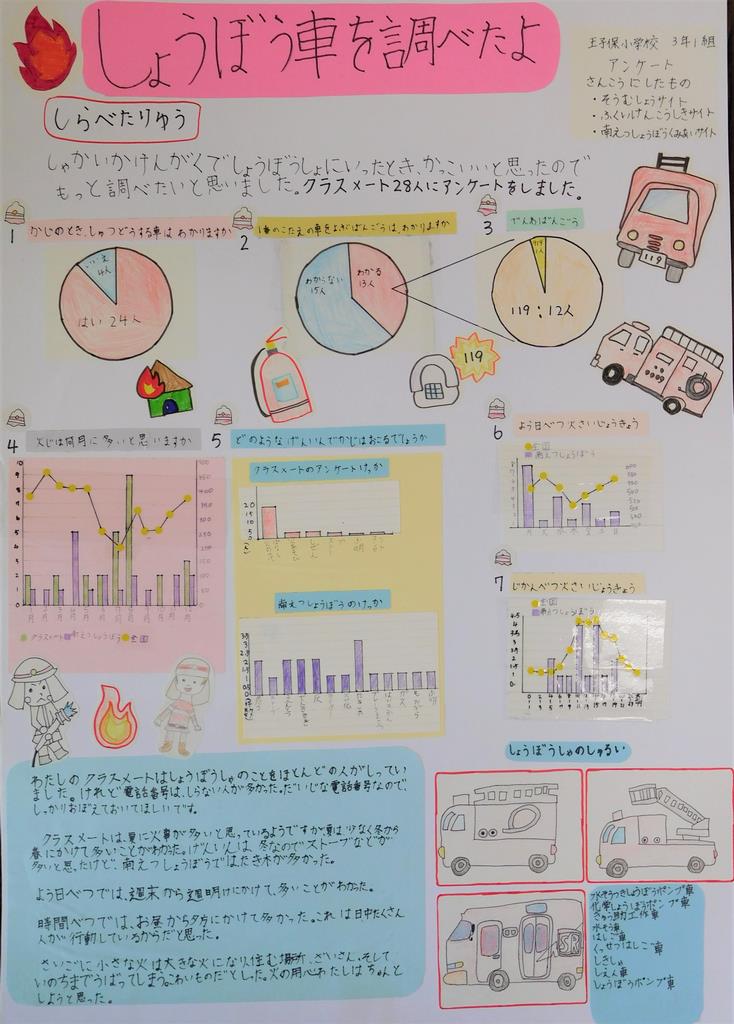 しょうぼう車を調べたよ
王子保小学校 3年1組
アンケート
さんこうにしたもの
・そうむしょうサイト
・ふくいけんこうしきサイト
・南えつしょうぼうくみあいサイト
しらべたりゆう
しゃかいかけんがくでしょうぼうしょにいったとき、かっこいいと思ったので
もっと調べたいと思いました。クラスメート28人にアンケートをしました。
1 かじのとき、しゅつどうする車はわかりますか
いいえ 4人
はい 24人
2 1番のこたえの車をよぶばんごうは、わかりますか
わからない 15人
わかる 13人
3 でんわばんごう
919 1人
119:12人
119
119
4 火じは何月に多いと思いますか
クラスメート 南えつしょうぼう 全国
5 どのようなげんいんでかじはおこるでしょうか
クラスメートのアンケートけっか
南えつしょうぼうのけっか
6 よう日べつ火さいじょうきょう
全国
南えつしょうぼう
月 火 水 木 金 土 日
7 じかんべつ火さいじょうきょう
全国
南えつしょうぼう
わたしのクラスメートはしょうぼうしゃのことをほとんどの人がしってい
ました。けれど電話番号は、しらない人が多かった。だいじな電話番号なので、
しっかりおぼえておいてほしいです。
クラスメートは、夏に火事が多いと思っているようですが、夏は少なく冬から
春にかけて多いことがわかった。げんいんは、冬なのでストーブなどが
多いと思ったけど、南えつしょうぼうではたき木が多かった。
よう日べつでは、週末から週明けにかけて、多いことがわかった。
時間べつでは、お昼から夕方にかけて多かった。これは日中たくさん
人が行動しているからだと思った。
さいごに小さな火は大きな火になり住む場所、ざいさん、そして
いのちまでうばってしまう。こわいものだとした。火の用心わたしはちゃんと
しようと思った。
しょうぼうしゃのしゅるい
SR
水そうつきしょうぼうポンプ車
化学しょうぼうポンプ車
きゅう助工作車
水そう車
はしご車
くっせつはしご車
しきしゃ
しえん車
しょうぼうポンプ車